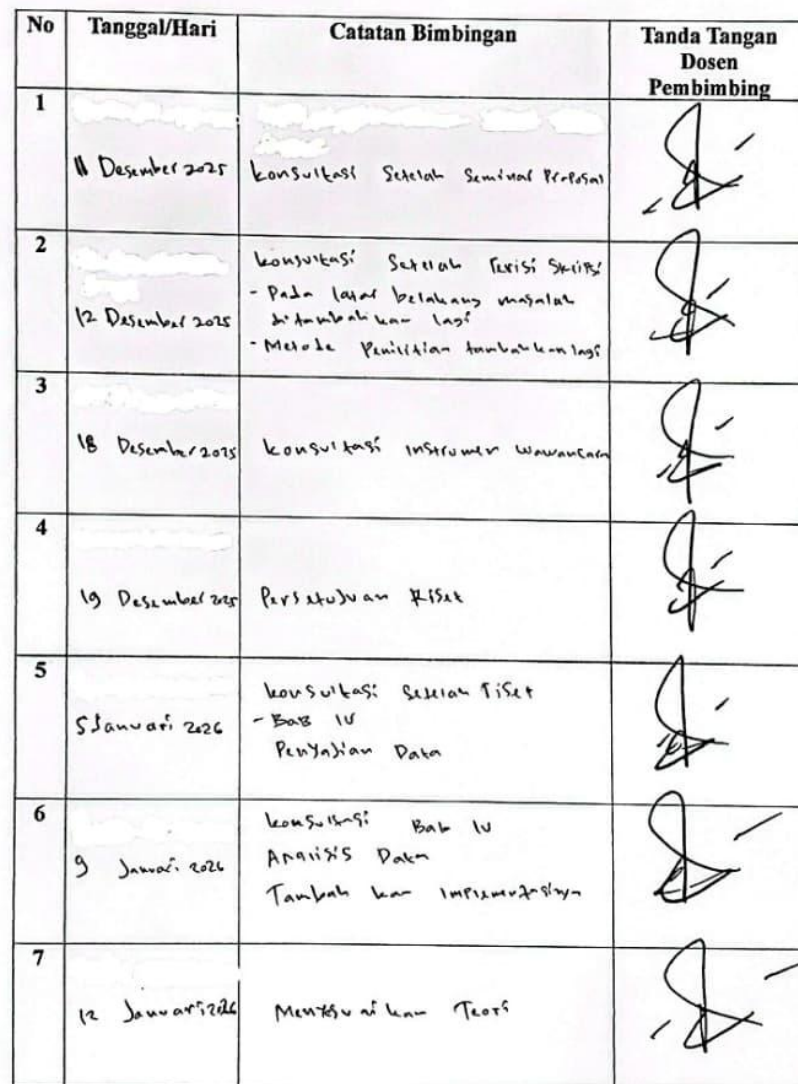 No Tanggal/Hari Catatan Bimbingan Tanda Tangan
Dosen
Pembimbing
1
11 Desember 2025 konsultasi Setelah Seminar Proposal
2
konsultasi Setelah revisi Skripsi
- Pada latar belakang masalah
12 Desember 2025 ditambahkan lagi
- Metode Penilitian tambahkan lagi
3
18 Desember 2025 konsultasi instrumen wawancara
4
19 Desember 2025 Persetujuan Riset
5
konsultasi Setelah riset
5 Januari 2026 - Bab IV
Penyajian Data
6
konsultasi Bab IV
9 Januari 2026 Analisis Data
Tambah kan implementasinya
7
12 Januari 2026 Menyesuaikan Teori